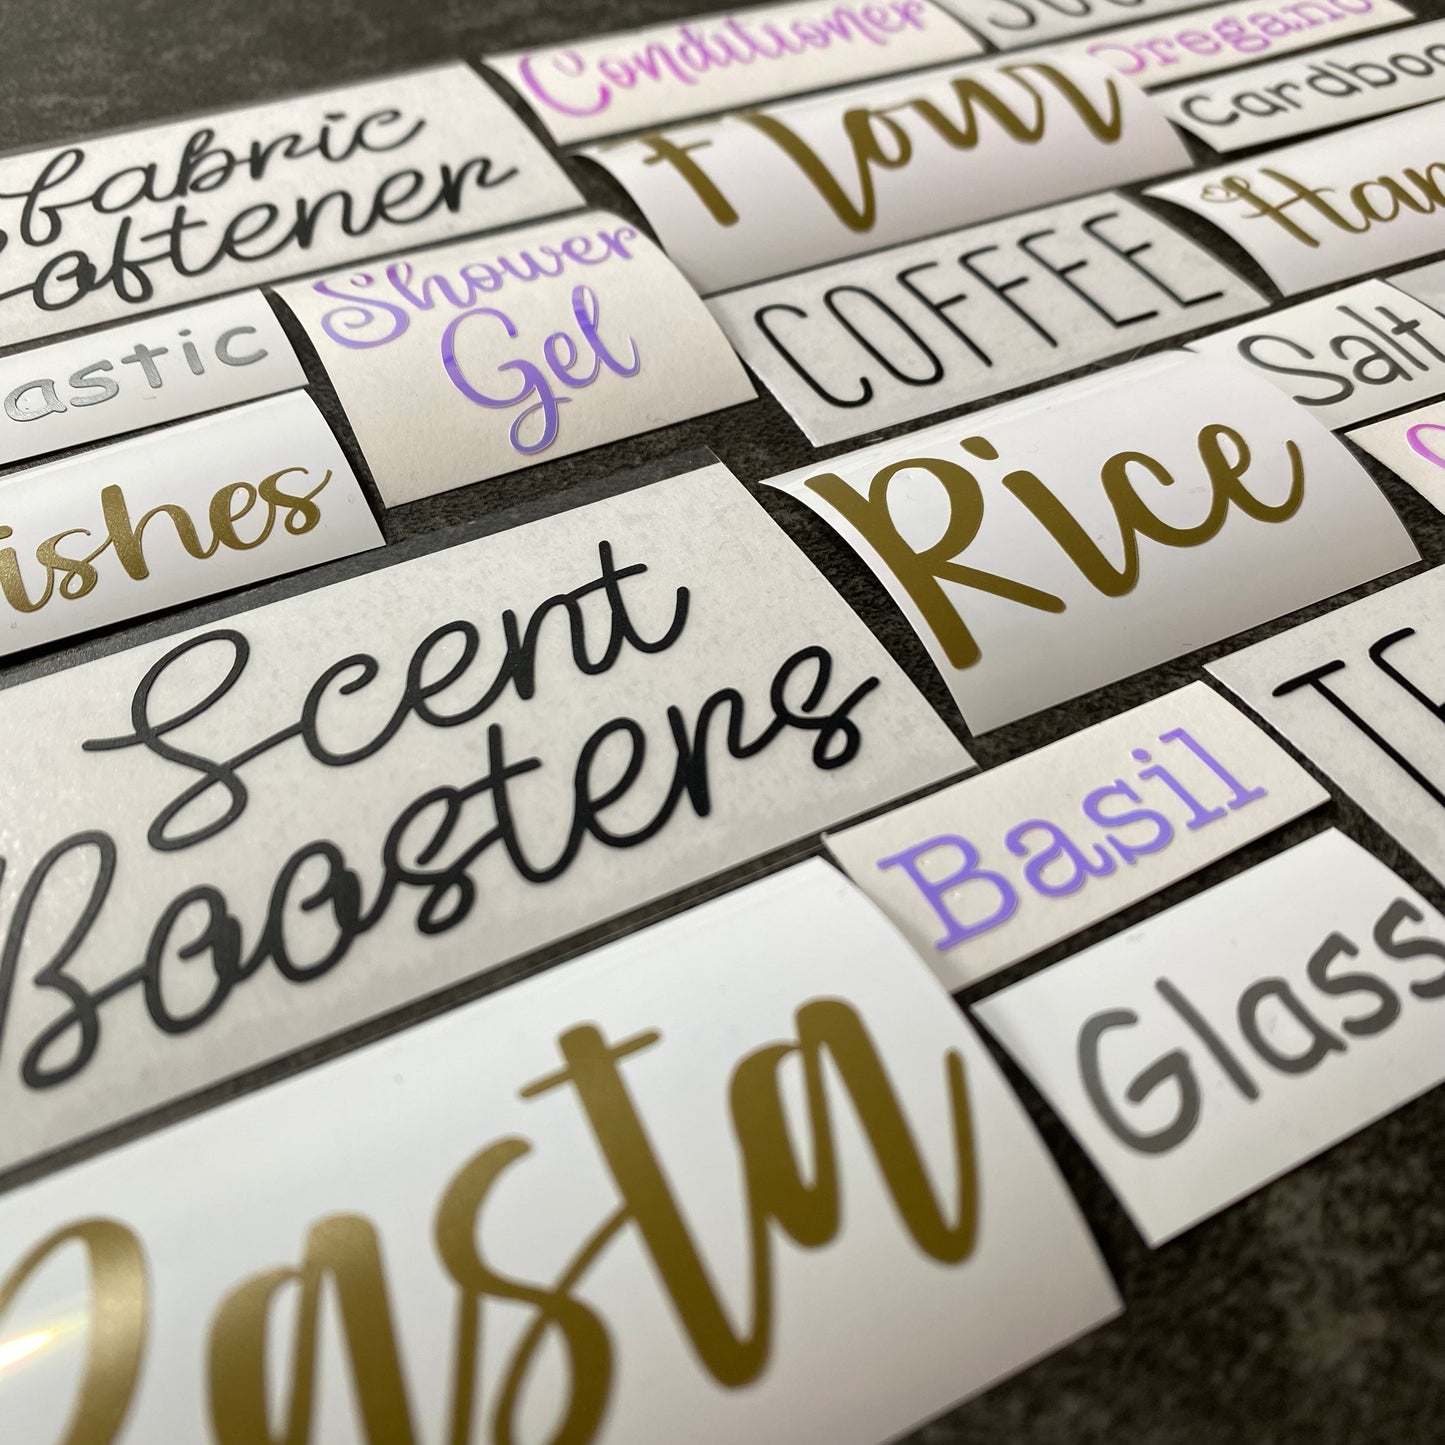 Conditioner
Oregano
Fabric
Softener
Flour
Cardboa
Shower
Gel
COFFEE
Han
astic
Salt
ishes
Rice
Scent
Boosters
TE
Basil
Glass
Pasta